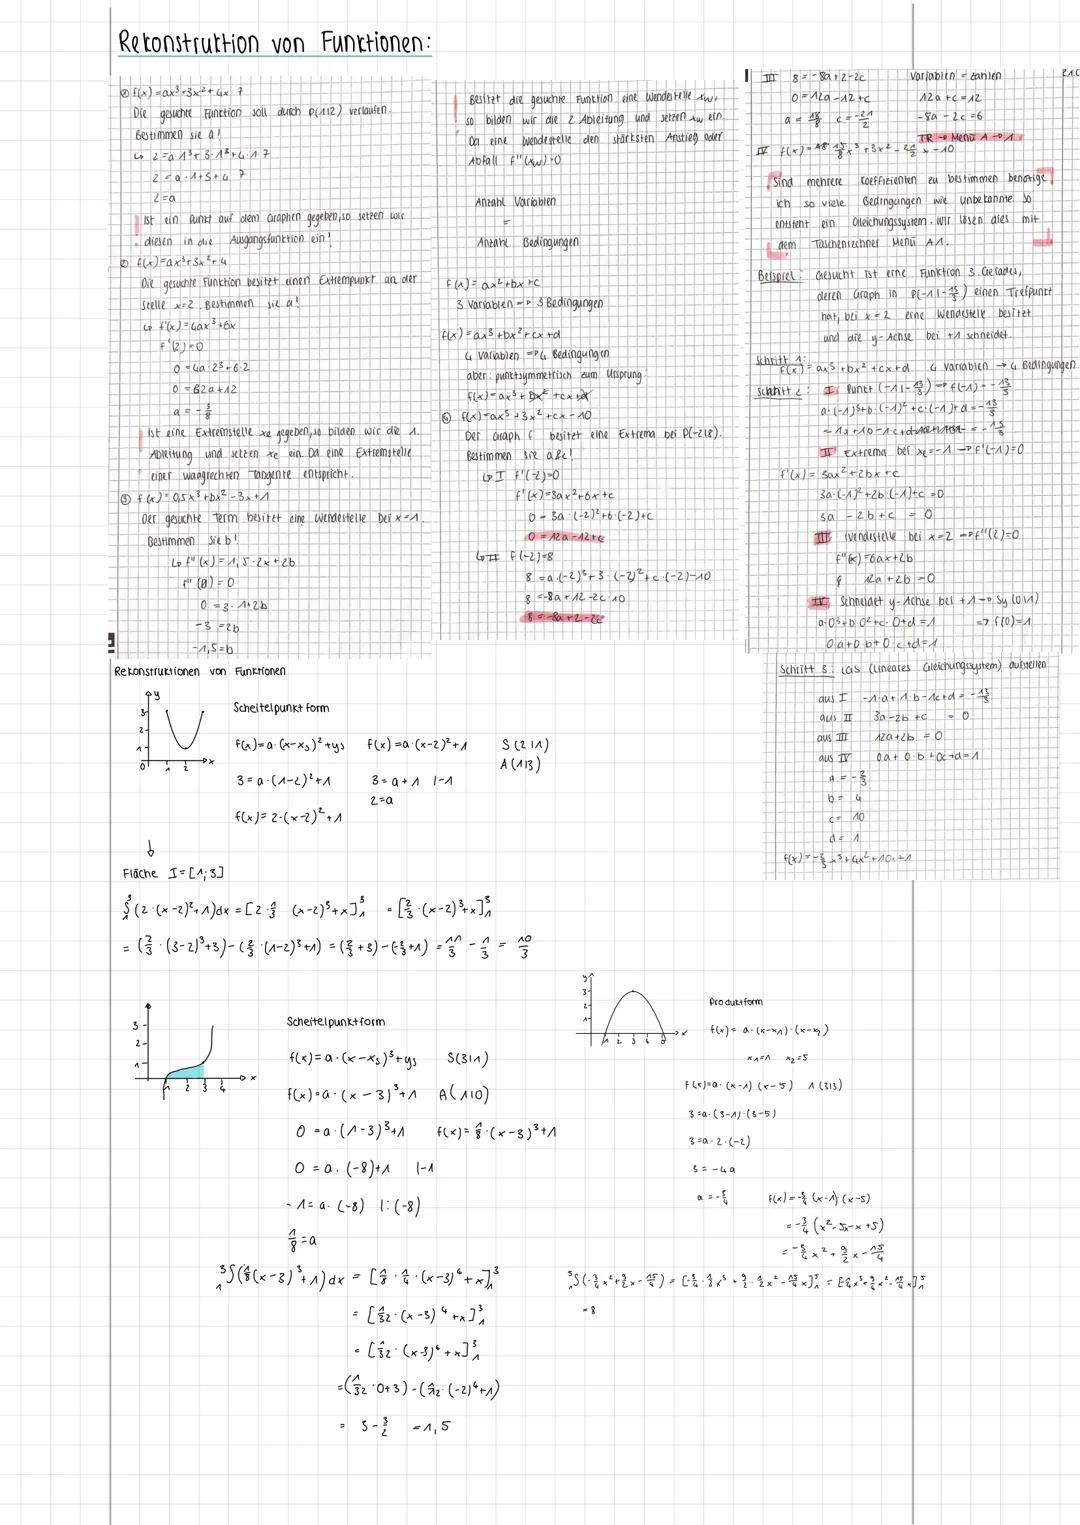 Rekonstruktion von Funktionen:
① f(x)=ax³+3x²+4x-7
Die gesuchte Funktion soll durch P(1|2) verlaufen.
Bestimmen sie a!
↳ 2=a·1³+3·1²+4·1-7
2=a
Ist ein Punkt auf dem Graphen gegeben, so setzen wir
diesen in die Ausgangsfunktion ein!
Die gesuchte Funktion besitzt einen Extrempunkt an der
Stelle x=2. Bestimmen sie a!
f'(2)=0
a = -3/8
Ist eine Extremstelle xe gegeben, so bilden wir die 1.
Ableitung und setzen xe ein. Da eine Extremstelle
einer waagrechten Tangente entspricht.
③ f(x)=0,5x³+bx²-3x+1
Der gesuchte Term besitzt eine Wendestelle bei x=1.
Bestimmen sie b!
↳ f''(x)=1,5·2x+2b
0=3·1+2b
-3=2b
-1,5=b
Besitzt die gesuchte Funktion eine Wendestelle xw,
so bilden wir die 2. Ableitung und setzen xw ein.
Da eine Wendestelle den stärksten Anstieg oder
Abfall f''(xw)=0
Anzahl Variablen
=
Anzahl Bedingungen
f(x)=ax²+bx+c
3 Variablen → 3 Bedingungen
f(x)=ax³+bx²+cx+d
4 Variablen → 4 Bedingungen
aber: punktsymmetrisch zum Ursprung:
④ f(x)=ax³+3x²+cx-10
Der Graph f besitzt eine Extrema bei P(-2|8).
↳ I f'(-2)=0
f'(x)=3ax²+6x+c
0=3a·(-2)²+6·(-2)+c
0=12a-12+c
↳ II f(-2)=8
8=a·(-2)³+3·(-2)²+c·(-2)-10
8=-8a+12-2c-10
8=-8a+2-2c
III 8=-8a+2-2c
Variablen = Zahlen
0=12a-12+c
12a+c=12
-8a-2c=6
TR → Menü A → 1
Sind mehrere Coeffizienten zu bestimmen benötige
ich so viele Bedingungen wie Unbekannte. So
entsteht ein Gleichungssystem. Wir lösen dies mit
dem Taschenrechner Menü A1.
Beispiel: Gesucht ist eine Funktion 3. Grades,
deren Graph in P(-1|-13/3) einen Tiefpunkt
hat, bei x=2 eine Wendestelle besitzt
und die y-Achse bei +1 schneidet.
Schritt 1:
f(x)=ax³+bx²+cx+d 4 Variablen → 4 Bedingungen
Schritt 2: I Punkt (-1|-13/3) → f(-1)=-13/3
a·(-1)³+b·(-1)²+c·(-1)+d=-13/3
II Extrema bei xe=-1 → f'(-1)=0
f'(x)=3ax²+2bx+c
3a·(-1)²+2b·(-1)+c=0
3a-2b+c=0
III Wendestelle bei x=2 → f''(2)=0
f''(x)=6ax+2b
12a+2b=0
IV Schneidet y-Achse bei +1 → Sy(0|1)
a·0³+b·0²+c·0+d=1 => f(0)=1
0a+0·b+0·c+d=1
Schritt 3: LGS (Lineares Gleichungssystem) aufstellen
aus I -1·a+1·b-1c+d=-13/3
aus II 3a-2b+c=0
aus III 12a+2b=0
aus IV 0a+0·b+0c+d=1
a=-2/3
b=4
c=10
d=1
f(x)=-2/3x³+4x²+10x+1
Rekonstruktionen von Funktionen
Scheitelpunktform
f(x)=a·(x-xs)²+ys f(x)=a·(x-2)²+1 S(2|1)
A(1|3)
3=a·(1-2)²+1 3=a+1 |-1
2=a
f(x)=2·(x-2)²+1
↓
Fläche I=[1;3]
³∫₁(2·(x-2)²+1)dx=[2·1/3(x-2)³+x]³₁=[2/3·(x-2)³+x]³₁
=(2/3·(3-2)³+3)-(2/3·(1-2)³+1)=(2/3+3)-(-2/3+1)=11/3-1/3=10/3
Scheitelpunktform
f(x)=a·(x-xs)³+ys S(3|1)
f(x)=a·(x-3)³+1 A(1|0)
0=a·(1-3)³+1 f(x)=1/8·(x-3)³+1
0=a·(-8)+1 |-1
-1=a·(-8) |:(-8)
1/8=a
³∫₁(1/8(x-3)³+1)dx=[1/8·1/4·(x-3)⁴+x]³₁
=[1/32·(x-3)⁴+x]³₁
=[1/32·(x-3)⁴+x]³₁
=(1/32·0+3)-(1/32·(-2)⁴+1)
=3-3/2=1,5
Produktform
f(x)=a·(x-x₁)·(x-x₂)
x₁=1 x₂=5
f(x)=a·(x-1)(x-5) A(3|3)
3=a·(3-1)·(3-5)
3=a·2·(-2)
3=-4a
a=-3/4 f(x)=-3/4(x-1)(x-5)
=-3/4(x²-5x-x+5)
=-3/4x²+9/2x-15/4
=8